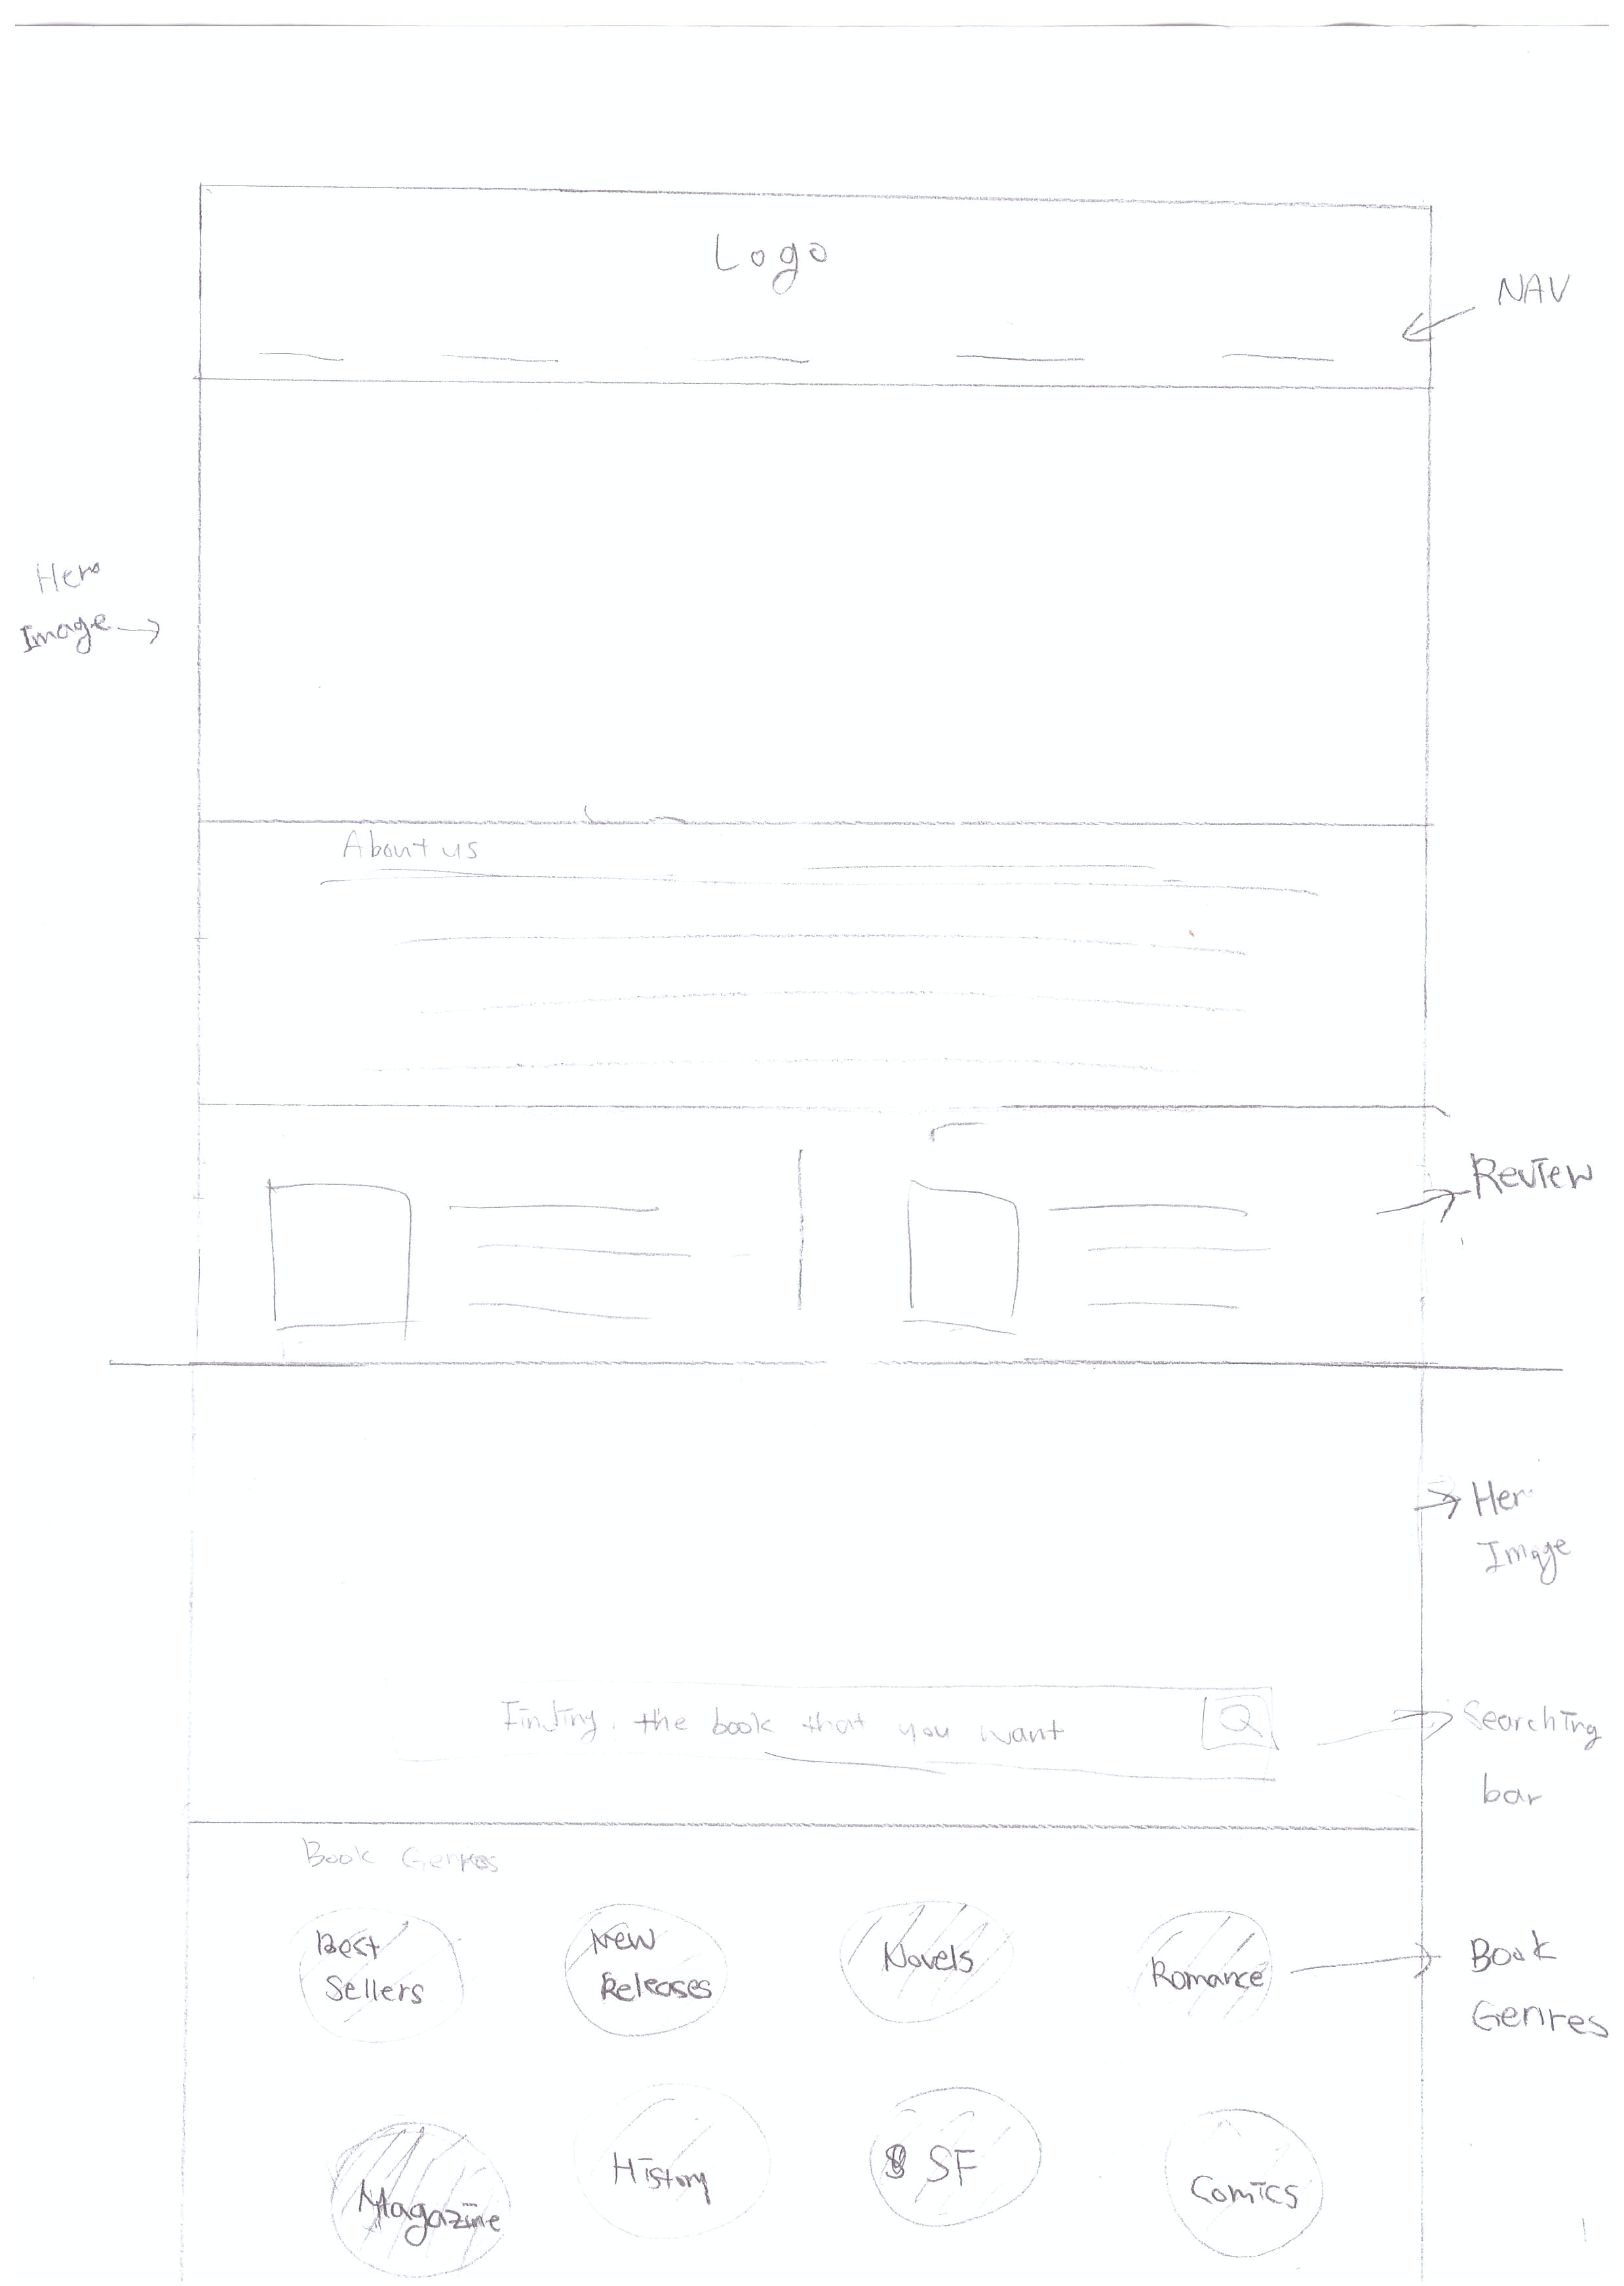 Logo
NAV
Hero
Image
About us
Review
Her
Image
Finding the book that you want
Searching
bar
Book Genres
Best
Sellers
New
Releases
Novels
Romance
Book
Genres
Magazine
History
SF
Comics